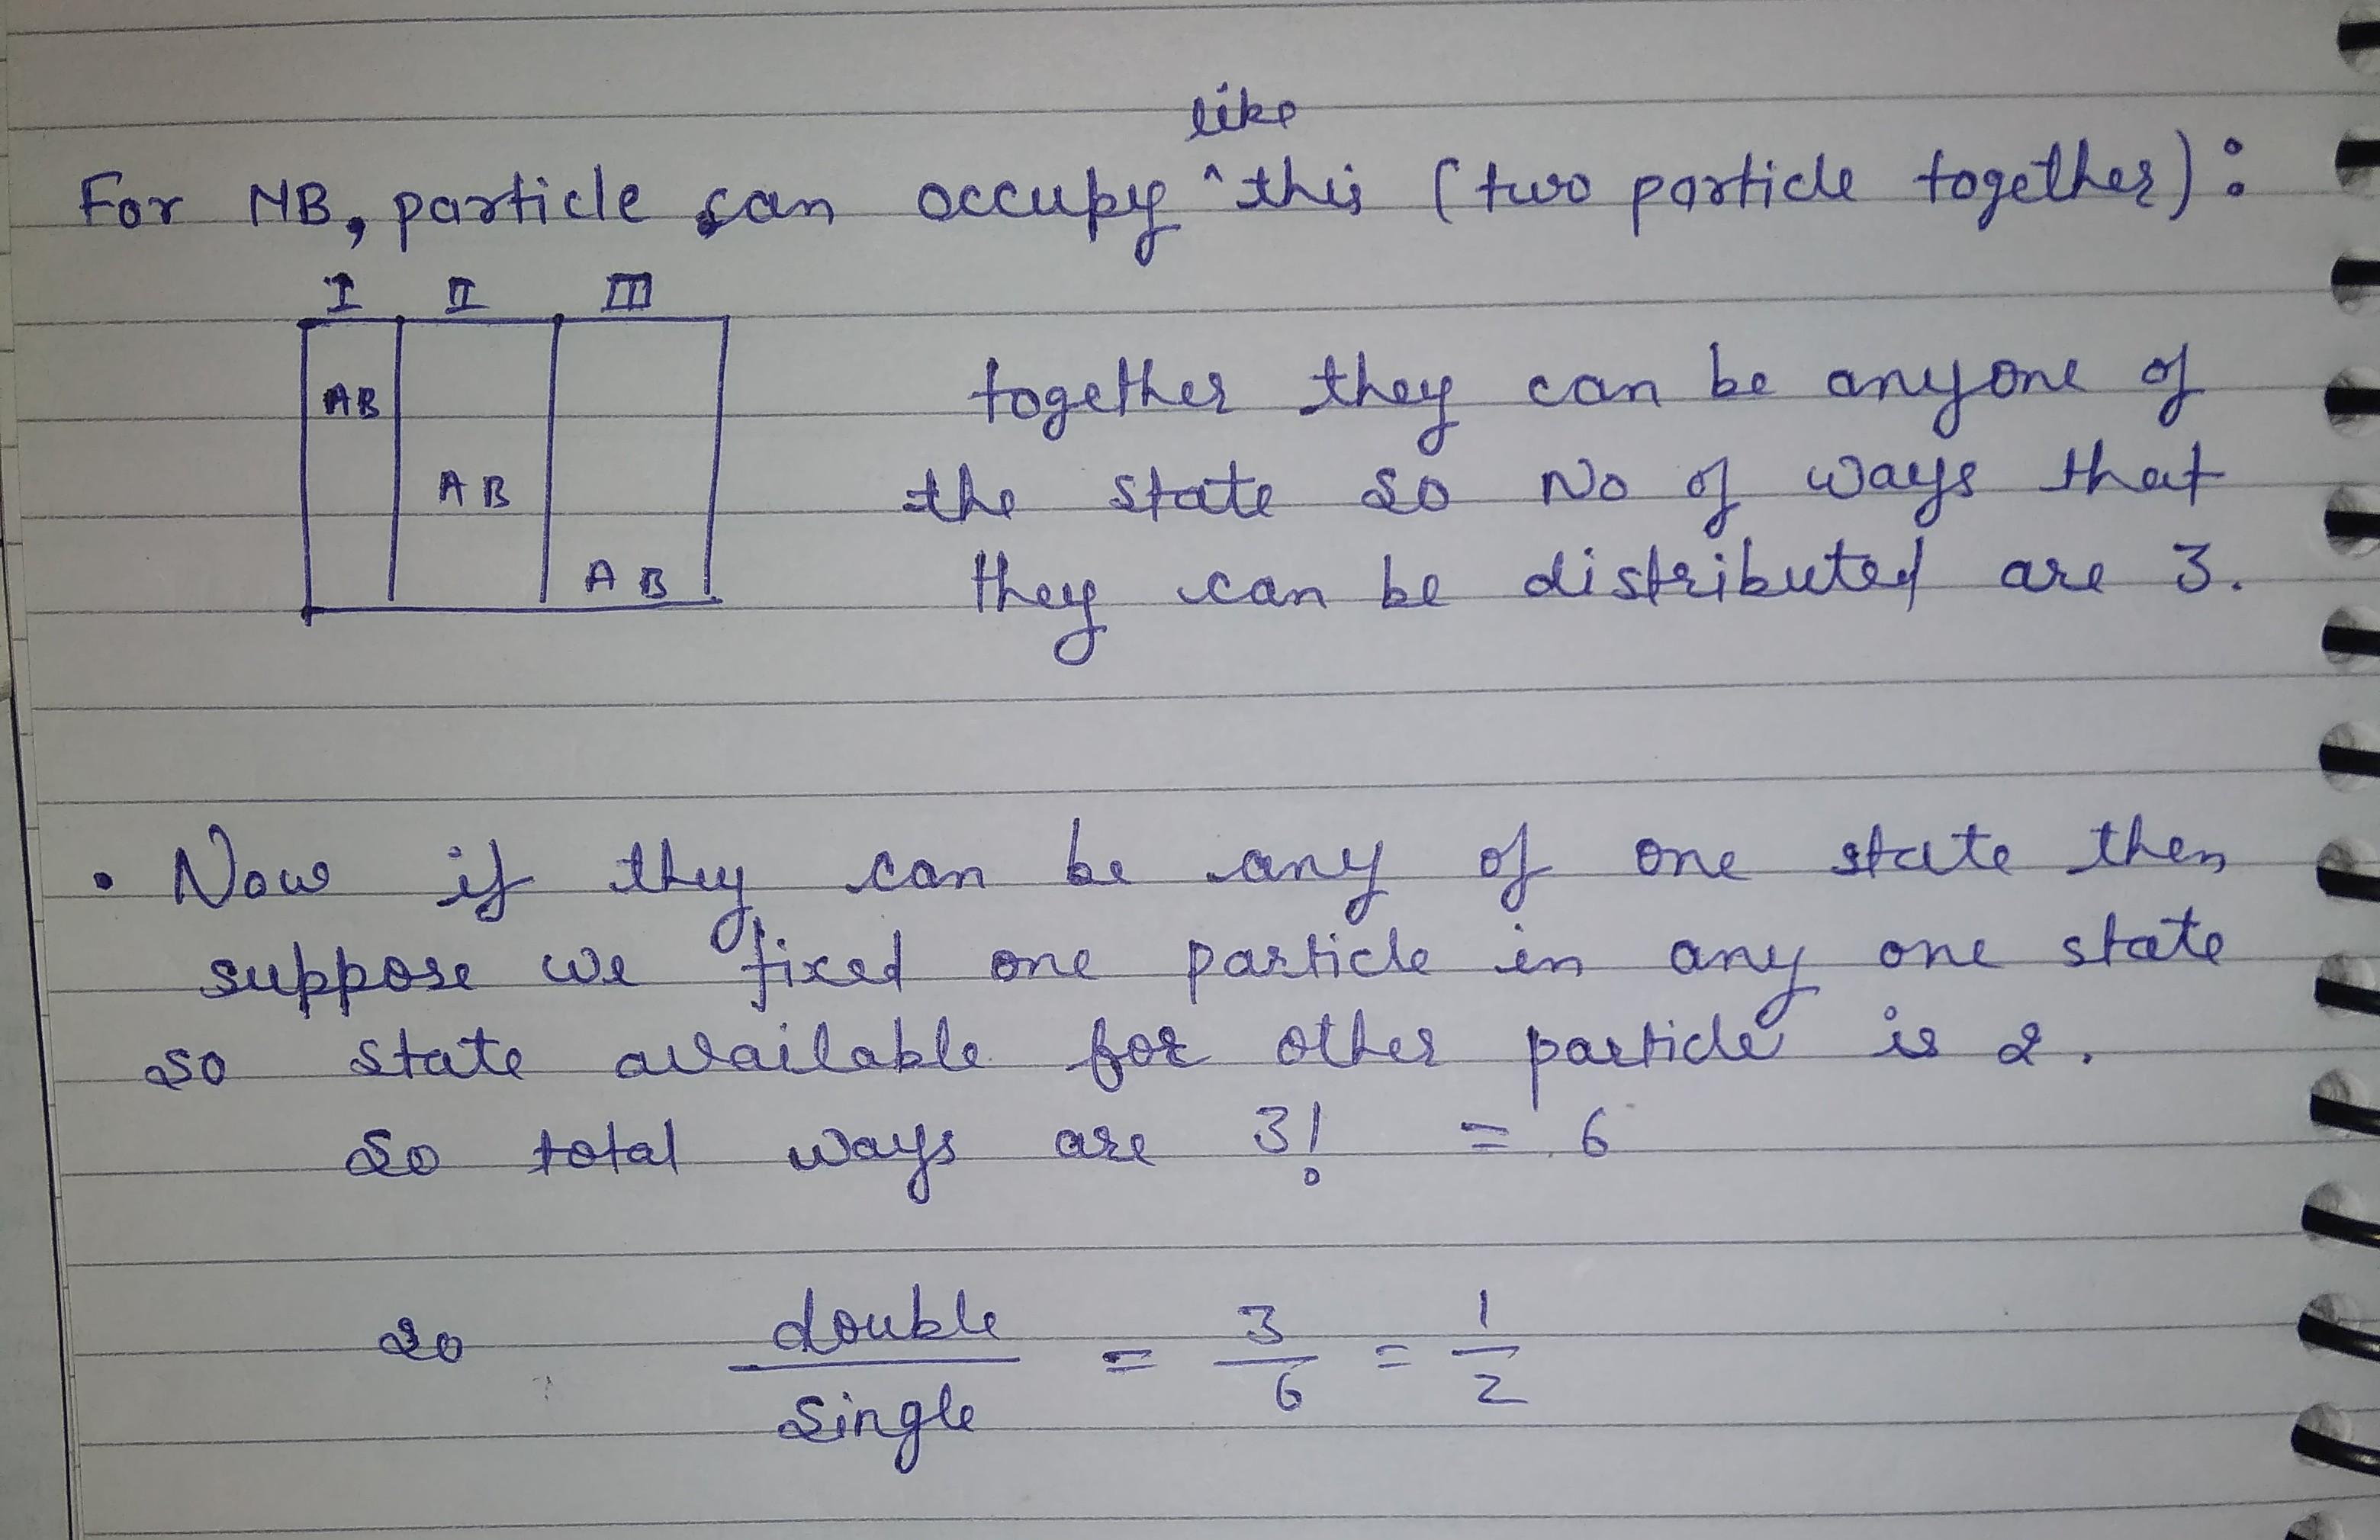 like
For MB, particle can occupy ^ this (two particle together):
I II III
AB
together they can be anyone of
AB
the state so No of ways that
AB
they can be distributed are 3.
• Now if they can be any of one state then
suppose we fixed one particle in any one state
so state available for other particle is 2.
So total ways are 3! = 6
so double/single = 3/6 = 1/2